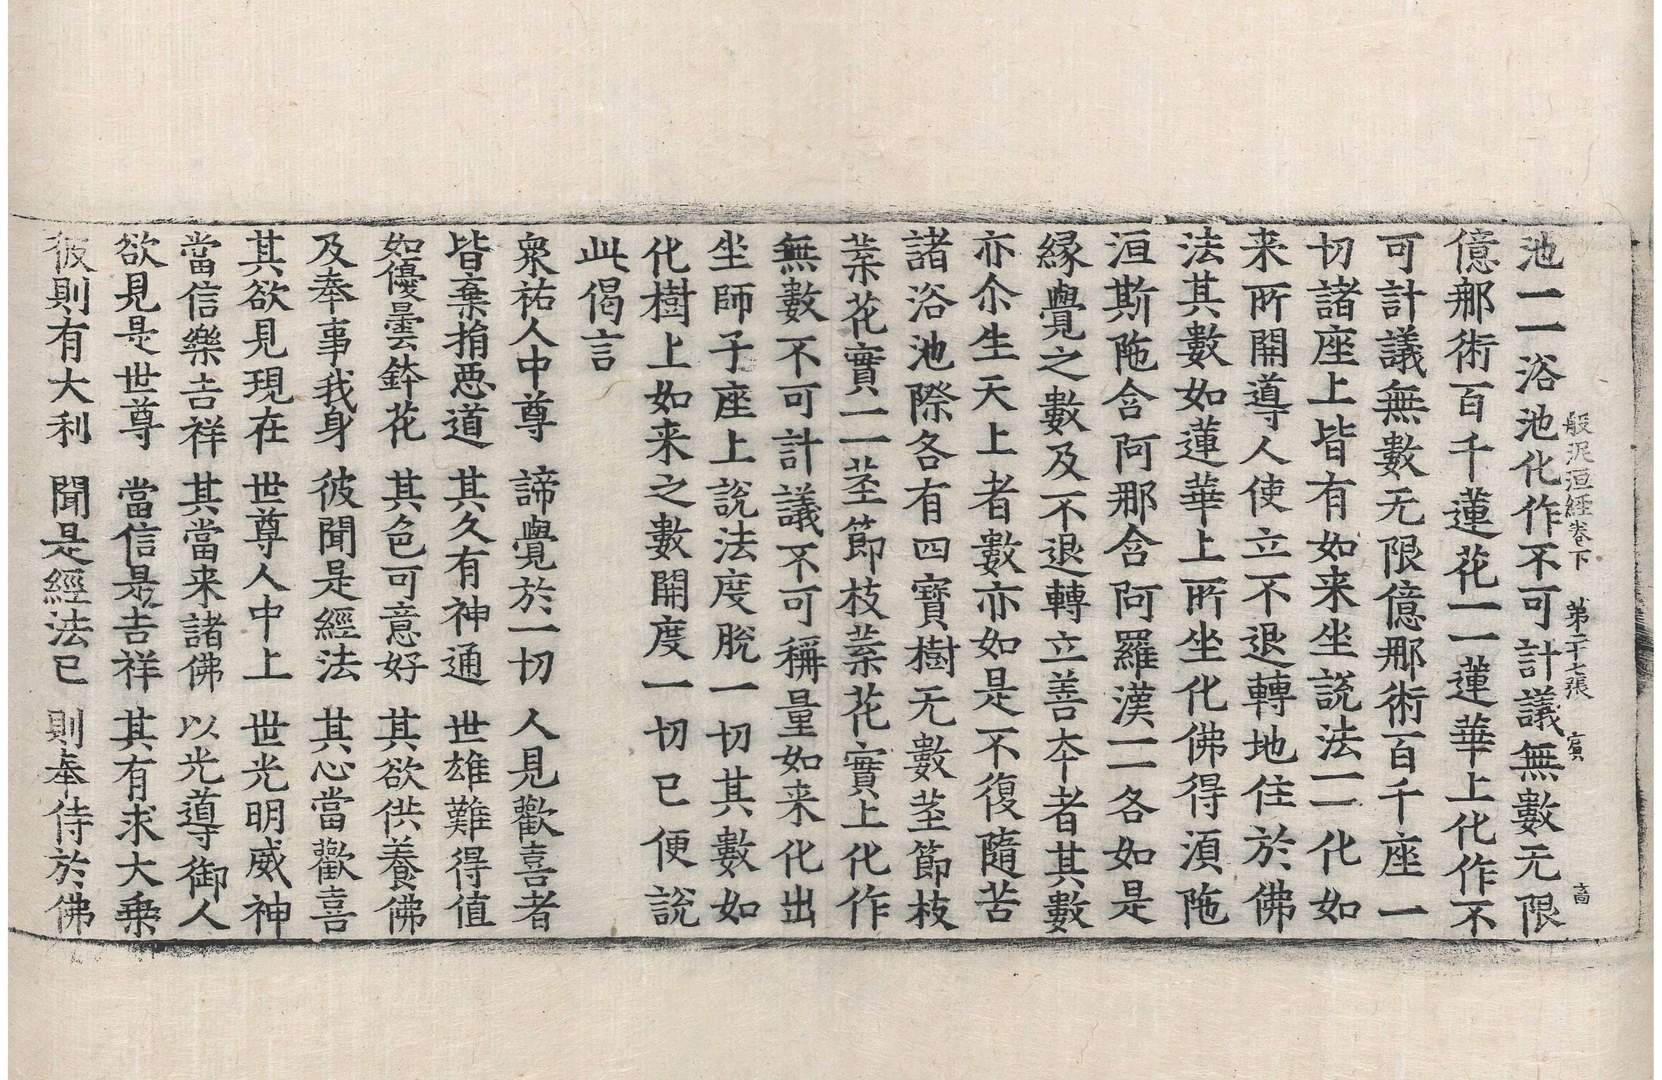 般泥洹經卷下　第二十七張　賓　高
池一一浴池化作不可計議無數无限
億那術百千蓮花一一蓮華上化作不
可計議無數无限億那術百千座一
切諸座上皆有如来坐說法一一化如
来所開導人使立不退轉地住於佛
法其數如蓮華上所坐化佛得湏陁
洹斯陁含阿那含阿羅漢一一各如是
縁覺之數及不退轉立善夲者其數
亦尒生天上者數亦如是不復隨苦
諸浴池際各有四寶樹无數莖節枝
葉花實一一莖節枝葉花實上化作
無數不可計議不可稱量如来化出
坐師子座上說法度脫一切其數如
化樹上如来之數開度一切已便說
此偈言
衆祐人中尊　諦覺於一切　人見歡喜者
皆棄捐惡道　其久有神通　世雄難得值
如優曇鉢花　其色可意好　其欲供養佛
及奉事我身　彼聞是經法　其心當歡喜
其欲見現在　世尊人中上　世光明威神
當信樂吉祥　其當来諸佛　以光導御人
欲見是世尊　當信是吉祥　其有求大乗
彼則有大利　聞是經法已　則奉侍於佛